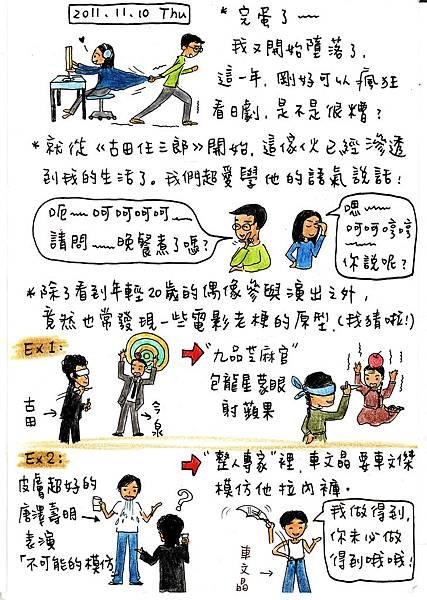 2011.11.10 Thu
*完蛋了~~
我又開始墮落了,
這一年,剛好可以瘋狂
看日劇,是不是很糟?
*就從《古田任三郎》開始,這傢伙已經滲透
到我的生活了。我們超愛學他的語氣說話!
呃~~呵呵呵呵~~
請問~~晚餐煮了嗎?
嗯~~
呵呵哼哼
~~
你說呢?
*除了看到年輕20歲的偶像參與演出之外,
竟然也常發現一些電影老梗的原型,(我猜啦!)
Ex1:
古田
今泉
"九品芝麻官"
包龍星蒙眼
射蘋果
Ex2:
皮膚超好的
唐澤壽明
表演
「不可能的模仿」
?
"整人專家"裡,車文晶要車文傑
模仿他拉內褲。
車文晶
我做得到,
你未必做
得到哦哦!